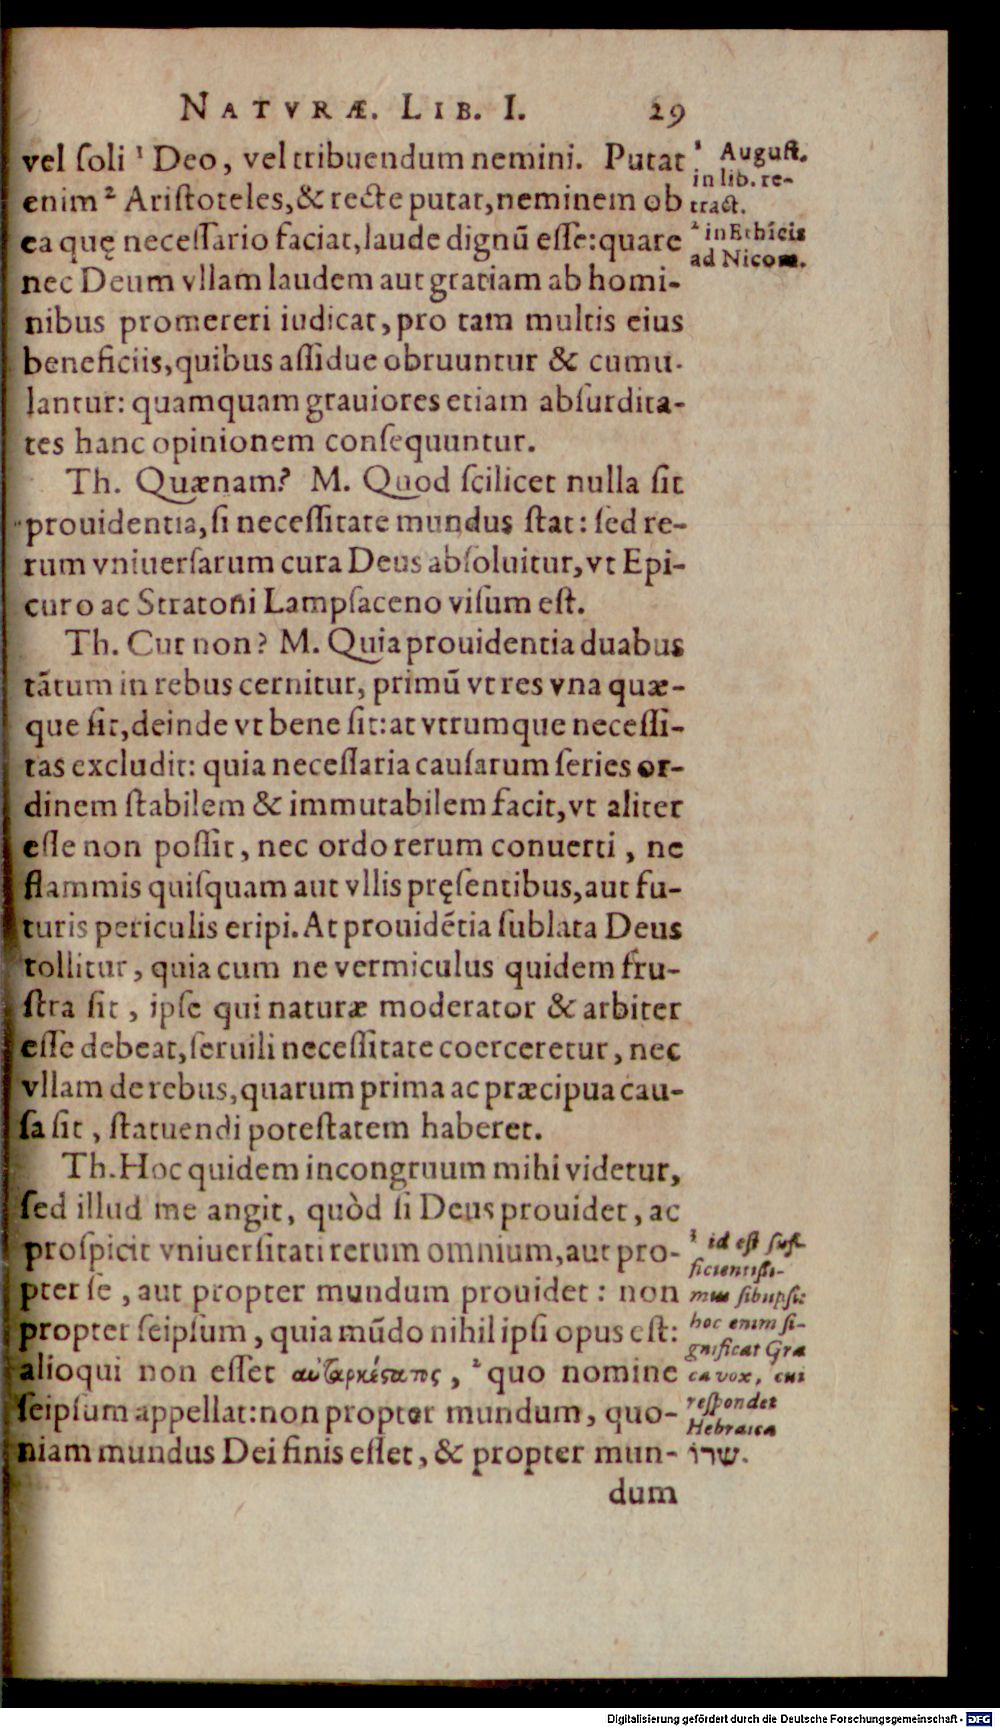 NATVRÆ. LIB. I. 29
vel ſoli ¹ Deo, vel tribuendum nemini. Putat
enim ² Ariſtoteles, & recte putat, neminem ob
ea quę neceſſario faciat, laude dignũ eſſe: quare
nec Deum vllam laudem aut gratiam ab homi-
nibus promereri iudicat, pro tam multis eius
beneficiis, quibus aſſidue obruuntur & cumu-
lantur: quamquam grauiores etiam abſurdita-
tes hanc opinionem conſequuntur.
Th. Quænam? M. Quod ſcilicet nulla ſit
prouidentia, ſi neceſſitate mundus ſtat: ſed re-
rum vniuerſarum cura Deus abſoluitur, vt Epi-
curo ac Stratoni Lampſaceno viſum eſt.
Th. Cur non? M. Quia prouidentia duabus
tãtum in rebus cernitur, primũ vt res vna quæ-
que ſit, deinde vt bene ſit: at vtrumque neceſſi-
tas excludit: quia neceſſaria cauſarum ſeries or-
dinem ſtabilem & immutabilem facit, vt aliter
eſſe non poſſit, nec ordo rerum conuerti, ne
flammis quiſquam aut vllis pręſentibus, aut fu-
turis periculis eripi. At prouidẽtia ſublata Deus
tollitur, quia cum ne vermiculus quidem fru-
ſtra ſit, ipſe qui naturæ moderator & arbiter
eſſe debeat, ſeruili neceſſitate coerceretur, nec
vllam de rebus, quarum prima ac præcipua cau-
ſa ſit, ſtatuendi poteſtatem haberet.
Th. Hoc quidem incongruum mihi videtur,
ſed illud me angit, quòd ſi Deus prouidet, ac
proſpicit vniuerſitati rerum omnium, aut pro-
pter ſe, aut propter mundum prouidet: non
propter ſeipſum, quia mũdo nihil ipſi opus eſt:
alioqui non eſſet αὐταρκέστατος, ¹ quo nomine
ſeipſum appellat: non propter mundum, quo-
niam mundus Dei finis eſſet, & propter mun-
dum
¹ Auguſt.
in lib. re-
tract.
² in Ethicis
ad Nicom.
¹ id eſt ſuf-
ficientiſſi-
mus ſibiipſi:
hoc enim ſi-
gnificat Græ
ca vox, cui
reſpondet
Hebraica
שרו.
Digitalisierung gefördert durch die Deutsche Forschungsgemeinschaft - DFG